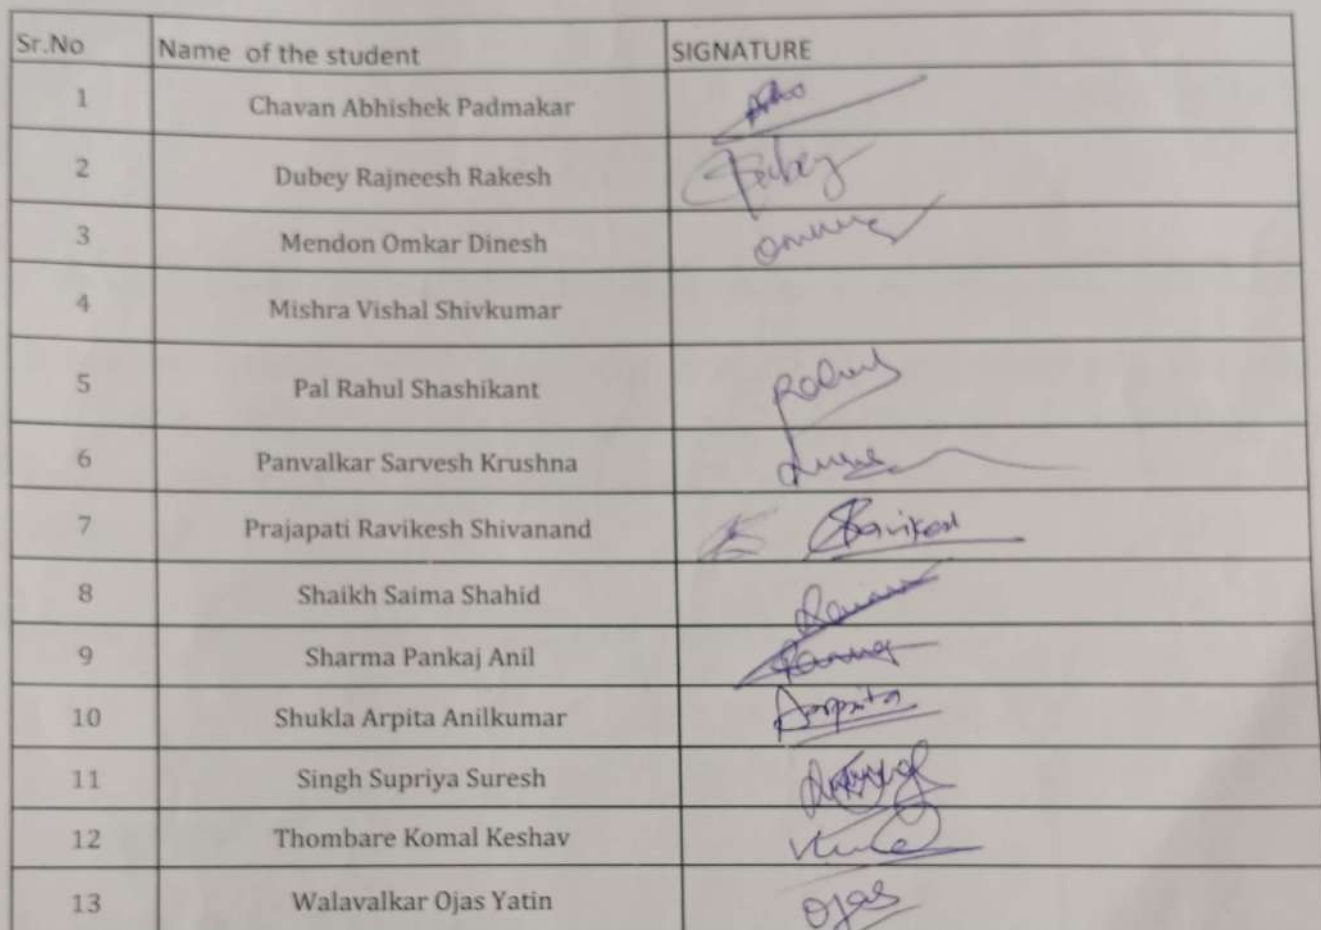 Sr.No Name of the student SIGNATURE
1 Chavan Abhishek Padmakar
2 Dubey Rajneesh Rakesh Dubey
3 Mendon Omkar Dinesh
4 Mishra Vishal Shivkumar
5 Pal Rahul Shashikant Rahul
6 Panvalkar Sarvesh Krushna
7 Prajapati Ravikesh Shivanand Ravikesh
8 Shaikh Saima Shahid
9 Sharma Pankaj Anil
10 Shukla Arpita Anilkumar Arpita
11 Singh Supriya Suresh
12 Thombare Komal Keshav
13 Walavalkar Ojas Yatin Ojas